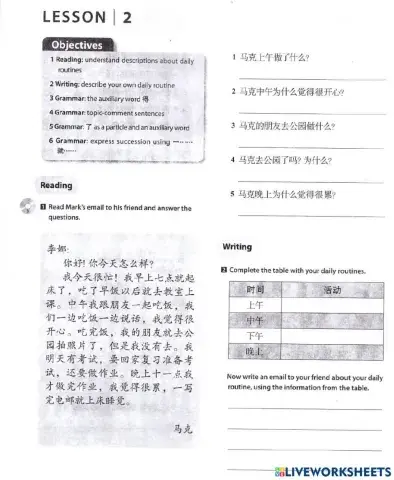 LESSON | 2
Objectives
1 Reading: understand descriptions about daily
routines
2 Writing: describe your own daily routine
3 Grammar: the auxiliary word 得
4 Grammar: topic-comment sentences
5 Grammar: 了 as a particle and an auxiliary word
6 Grammar: express succession using 一……
就……
Reading
1 Read Mark's email to his friend and answer the
questions.
李娜:
你好! 你今天怎么样?
我今天很忙! 我早上七点就起
床了, 吃了早饭以后就去教室上
课。中午我跟朋友一起吃饭, 我
们一边吃饭一边说话, 我觉得很
开心。吃完饭, 我的朋友就去公
园拍照片了, 但是我没有去。我
明天有考试, 要回家复习准备考
试, 还要做作业。晚上十一点我
才做完作业, 我觉得很累, 一写
完电邮就上床睡觉。
马克
1 马克上午做了什么?
2 马克中午为什么觉得很开心?
3 马克的朋友去公园做什么?
4 马克去公园了吗? 为什么?
5 马克晚上为什么觉得很累?
Writing
2 Complete the table with your daily routines.
时间 活动
上午
中午
下午
晚上
Now write an email to your friend about your daily
routine, using the information from the table.
LIVEWORKSHEETS